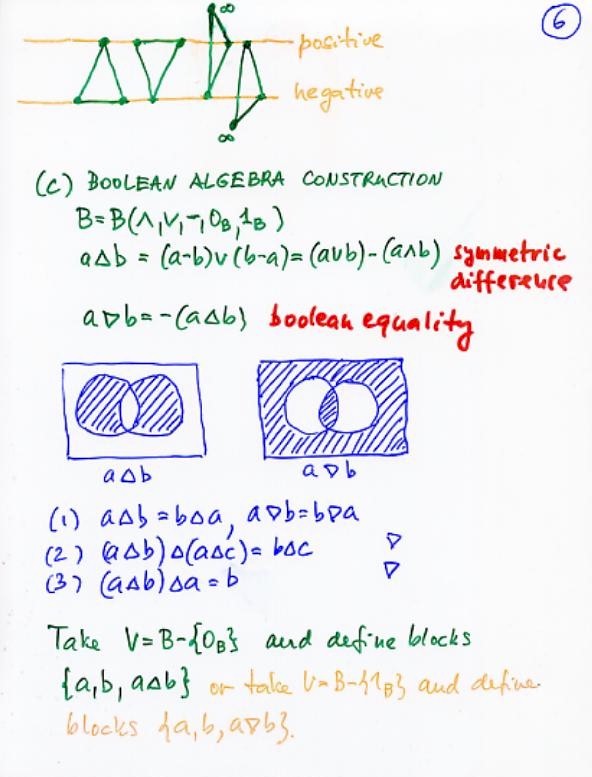 6
∞
positive
negative
∞
(c) BOOLEAN ALGEBRA CONSTRUCTION
B=B(∧,∨,-,0_B,1_B)
a△b = (a-b)∨(b-a)=(a∪b)-(a∧b) symmetric
difference
a▽b=-(a△b) boolean equality
a△b
a▽b
(1) a△b=b△a, a▽b=b▽a
(2) (a△b)△(a△c)=b△c ▽
(3) (a△b)△a=b ▽
Take V=B-{0_B} and define blocks
{a,b,a△b} or take V=B-{1_B} and define
blocks {a,b,a▽b}.